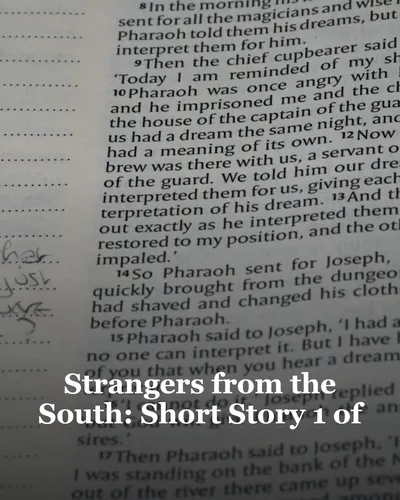 8In the morning his
sent for all the magicians and wise
Pharaoh told them his dreams, but
interpret them for him.
9Then the chief cupbearer said
‘Today I am reminded of my sh
10Pharaoh was once angry with
and he imprisoned me and the ch
the house of the captain of the gua
us had a dream the same night, and
had a meaning of its own. 12Now
brew was there with us, a servant o
of the guard. We told him our dre
interpreted them for us, giving each
terpretation of his dream. 13And th
out exactly as he interpreted them
restored to my position, and the oth
impaled.’
14So Pharaoh sent for Joseph,
quickly brought from the dungeo
had shaved and changed his cloth
before Pharaoh.
15Pharaoh said to Joseph, ‘I had a
no one can interpret it. But I have
of you that when you hear a dream
Strangers from the
South: Short Story 1 of
replied
sires.’
17Then Pharaoh said to Joseph, ‘I
I was standing on the bank of the N
out of the river there came up seve